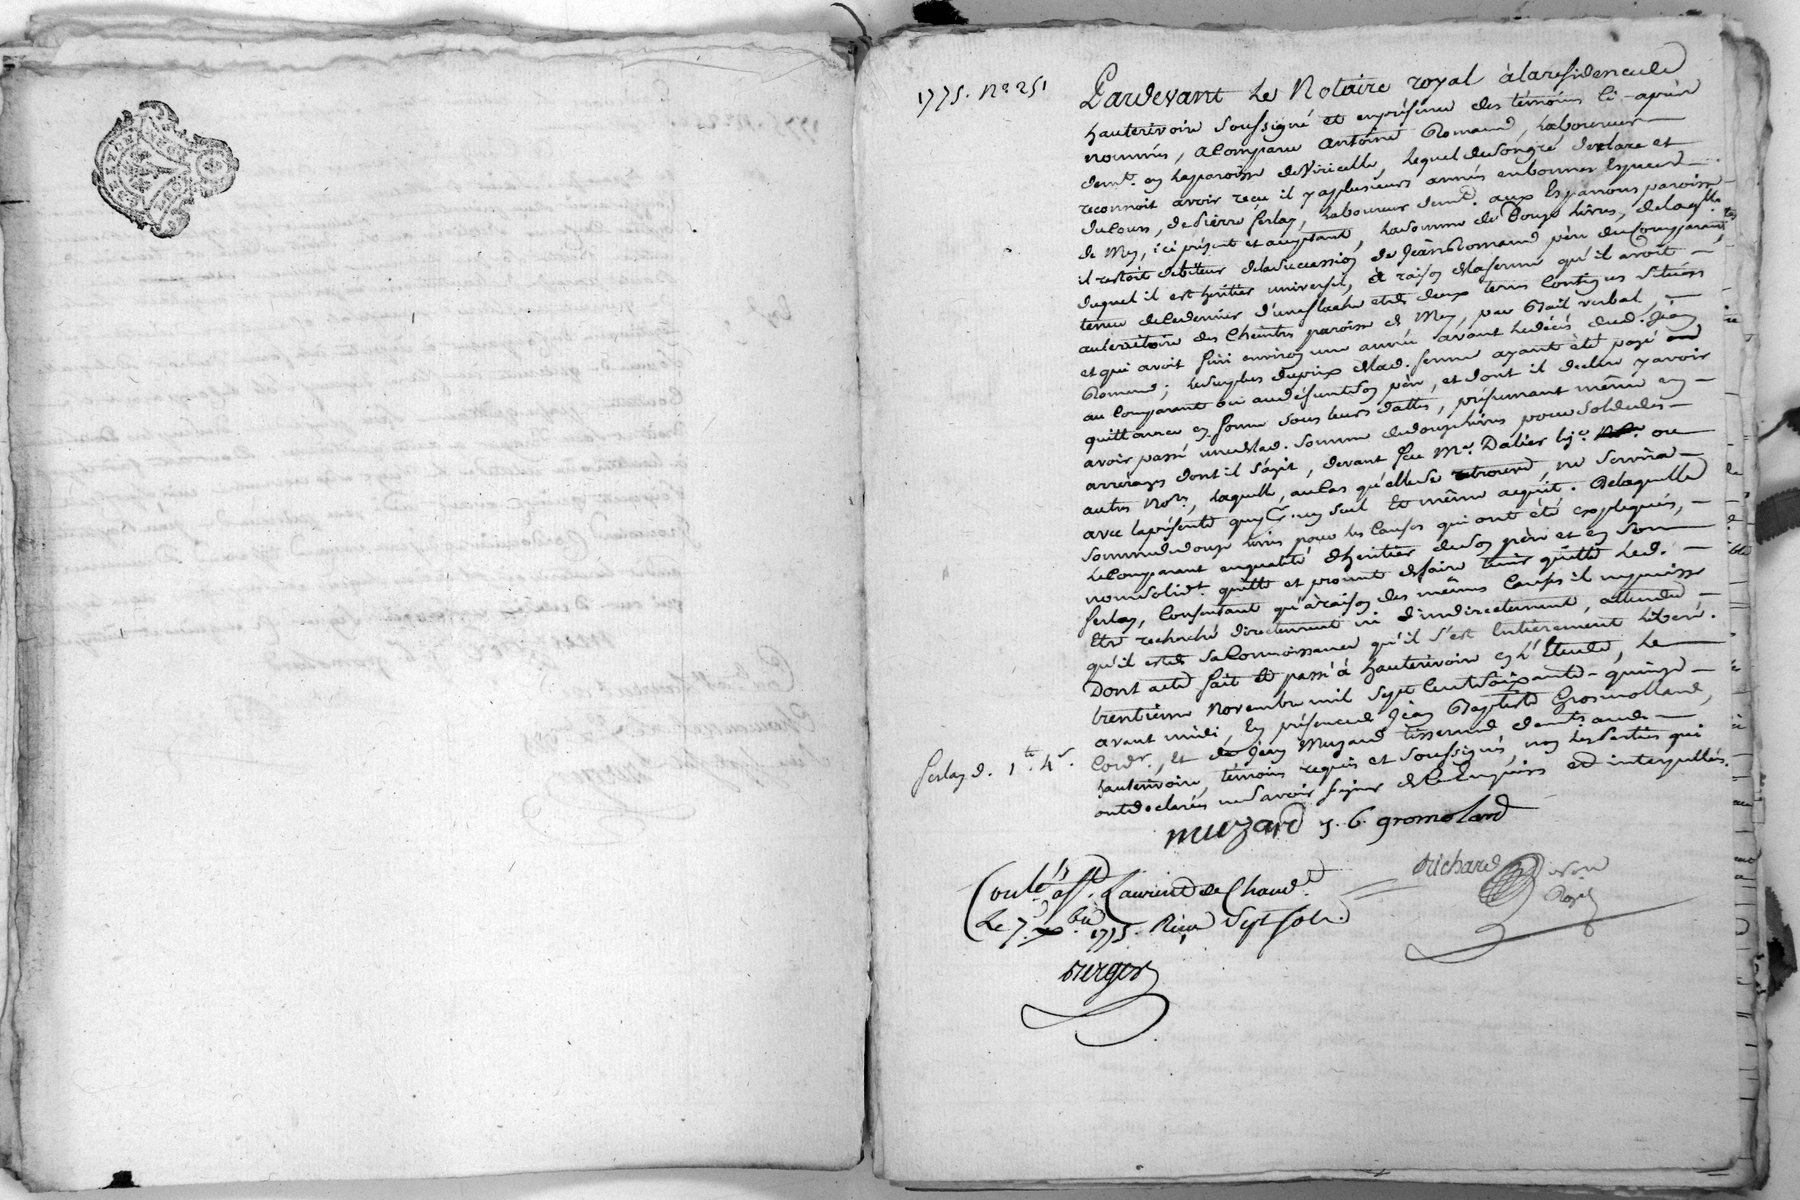 1775. No 251
Pardevant Le Notaire royal à la residence de
hauterivoire soussigné et en présence des témoins ci-après
nommés, a Comparu antoine Romand, Laboureur
demt. en la paroisse de Viricelle, Lequel de son gré declare et
reconnoit avoir reçu il y a plusieurs années en bonnes Especes
du Cours, de Pierre ferlay, Laboureur demt. aux Espanons paroisse
de Mey, ici présent et acceptant, La somme de Douze Livres, de laqlle
il restoit debiteur de la succession de Jean Romand père du Comparant,
duquel il est héritier universel, à raison de la ferme qu'il avoit
tenue de Ce dernier d'une et de deux terres Contigues situées
au territoire des Cheintres paroisse de Mey, par Bail verbal,
et qui avoit fini environ une année avant Le décès dud. Jean
Romand; Le surplus du prix de lad. ferme ayant été payé
au Comparant ou aud. défunt son père, et dont il declare y avoir
quittance en forme sous leurs dattes, présumant même en
avoir passé une de lad. somme de douze livres pour solde des
arrerages dont il s'agit, devant feu Me. Dalier ou
autres Nores, Laquelle, au Cas qu'elle se retrouve, ne servira
avec la présente que d'un seul Et même acquit. De laquelle
somme de douze Livres pour les Causes qui ont été expliquées,
Le Comparant en qualité d'héritier de son père et en son
nom solidt. quitte et promet de faire tenir quitte Led.
ferlay, Consentant qu'à raison des mêmes Causes il ne puisse
Etre recherché directement ni indirectement, attendu
qu'il est de sa Connoissance qu'il s'est Entièrement libéré.
Dont acte fait et passé à hauterivoire en L'Etude, Le
trentieme Novembre mil sept Cent soixante-quinze
avant midi, En présence de Jean Baptiste Grosmolland,
Cordr., Et de Jean Muzard tisserand demts. aud.
hauterivoire, témoins requis et soussignés, non Les Parties qui
ont declarés ne savoir signer de Ce Enquises et interpellés.
ferlay d. 1te. 4s.
muzard J. B. gromolard
Richard Nore Royal
Conlé. à St. Laurent de Chamt.
Le 7. xbre. 1775. Reçu Sept sols.
Berger